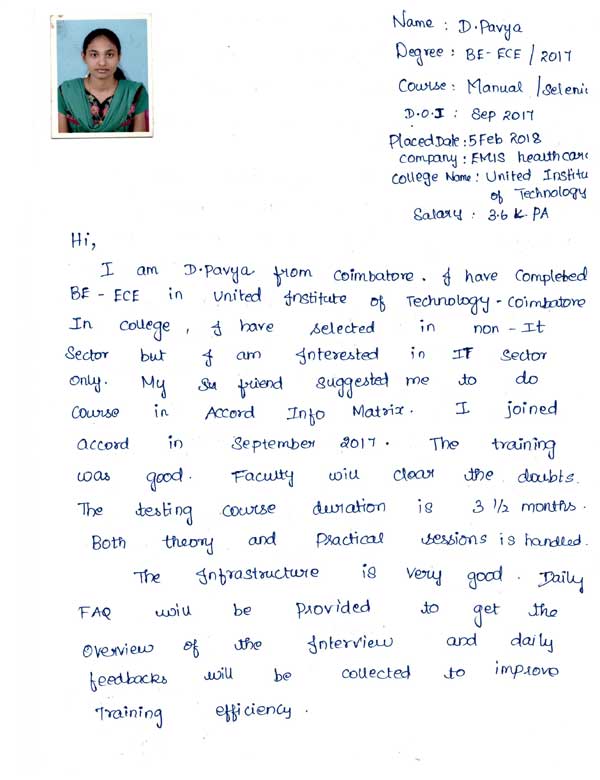 Name : D.Pavya
Degree : BE-ECE / 2017
Course : Manual / Seleni
D.O.I : Sep 2017
Placed Date : 5 Feb 2018
company : EMIS healthcare
college Name : United Institu
of Technology
Salary : 3.6 K PA
Hi,
I am D.Pavya from Coimbatore. I have Completed
BE - ECE in United Institute of Technology - Coimbatore
In college, I have selected in non - It
Sector but I am Interested in IT Sector
only. My friend suggested me to do
course in Accord Info Matrix. I joined
accord in September 2017. The training
was good. Faculty will clear the doubts.
The testing course duration is 3 1/2 months.
Both theory and Practical sessions is handled.
The Infrastructure is very good. Daily
FAQ will be Provided to get the
Overview of the Interview and daily
feedbacks will be collected to improve
Training efficiency.